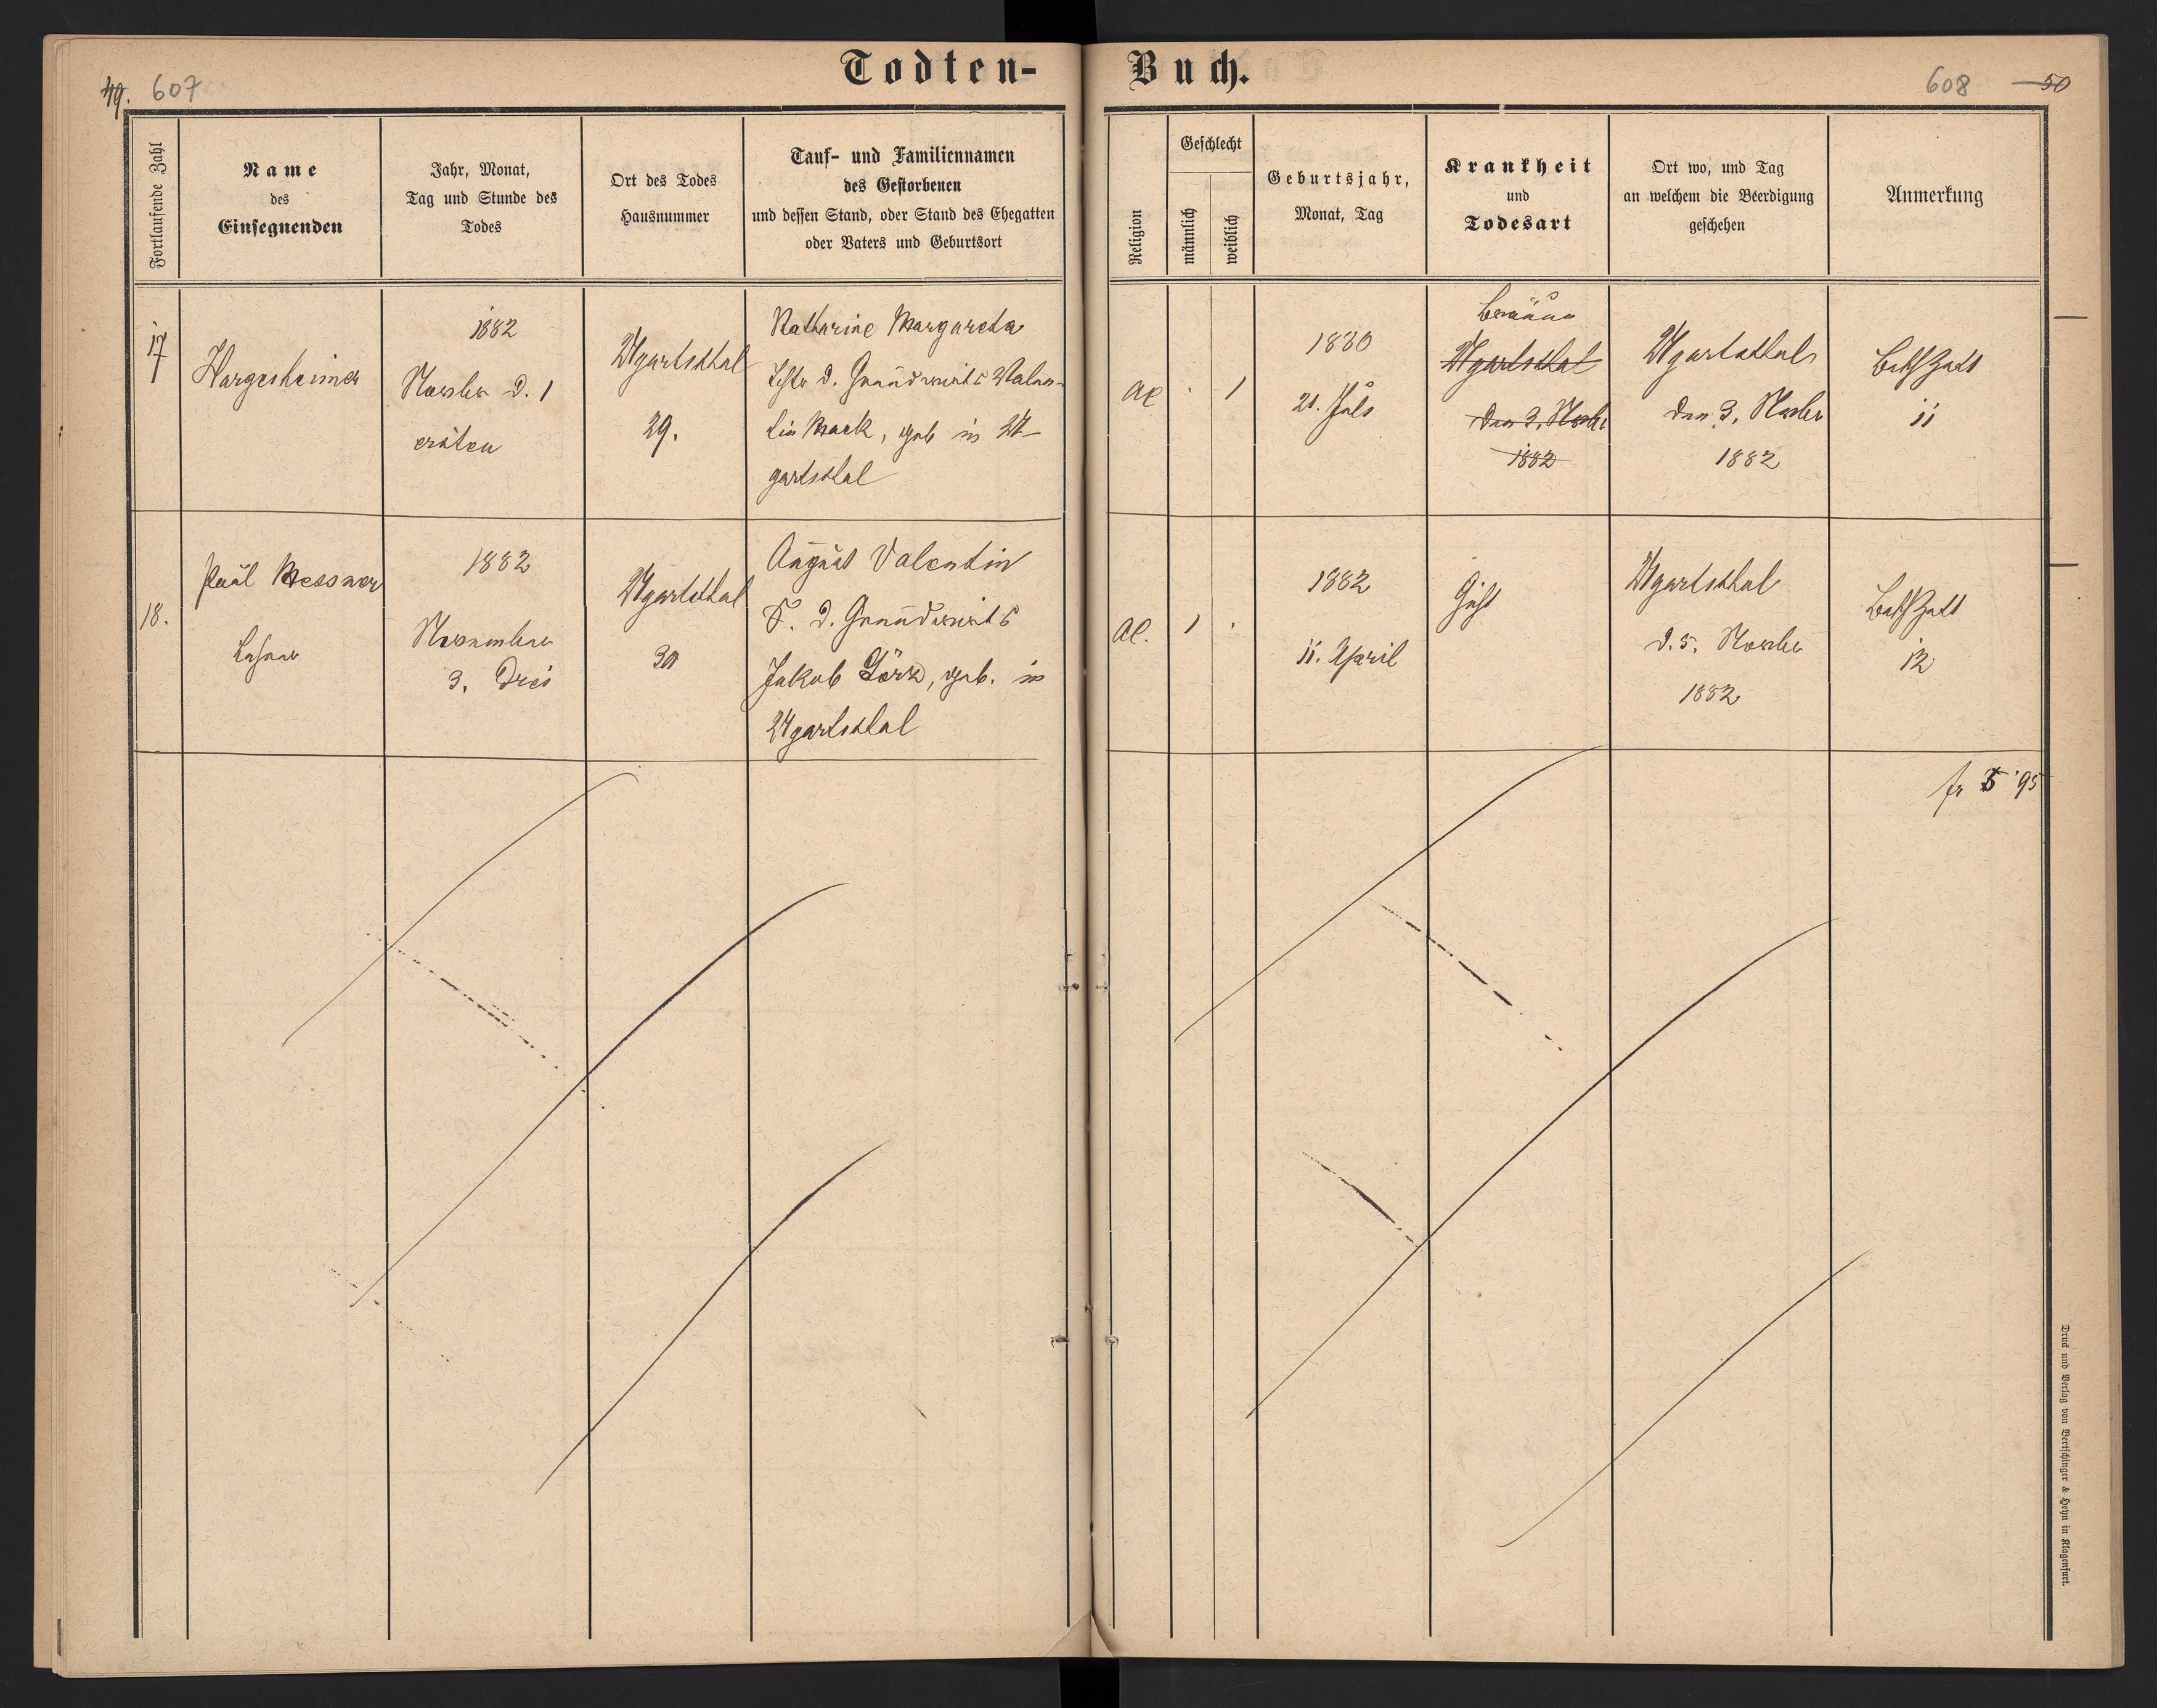 Todten-
Buch.
49. 607
608 50
Fortlaufende Zahl
Name
des
Einsegnenden
Jahr, Monat,
Tag und Stunde des
Todes
Ort des Todes
Hausnummer
Tauf- und Familiennamen
des Gestorbenen
und dessen Stand, oder Stand des Ehegatten
oder Vaters und Geburtsort
Religion
Geschlecht
männlich
weiblich
Geburtsjahr,
Monat, Tag
Krankheit
und
Todesart
Ort wo, und Tag
an welchem die Beerdigung
geschehen
Anmerkung
17
Hargesheimer
1882
Novbr d. 1
ersten
Ugartsthal
29.
Katharine Margareta
Tchtr d. Grundwirts Valen-
tin Mack, geb in U-
gartsthal
AC
1
1880
21. Juli
Bräune
Ugartsthal
Den 3. Novbr
1882
Ugartsthal
Den 3. Novbr
1882
11
18.
Paul Messner
Lehrer
1882
November
3. Drei
Ugartsthal
30
August Valentin
S. d. Grundwirts
Jakob Görz, geb. in
Ugartsthal
AC.
1
1882
11. April
Gicht
Ugartsthal
d. 5. Novbr
1882
12
Druck und Verlag von Bertschinger & Heyn in Klagenfurt.